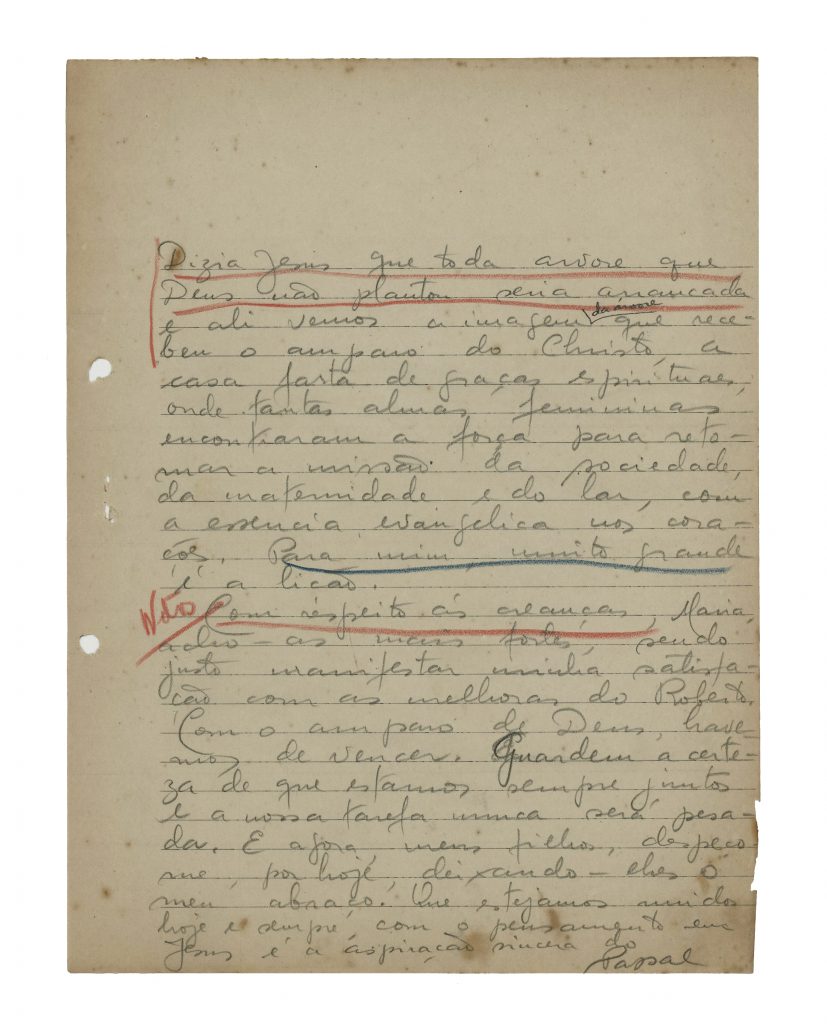 Dizia Jesus que toda arvore que
Deus não plantou seria arrancada
e ali vemos a imagem da árvore que rece-
beu o amparo do Christo, a
casa farta de graças espirituaes,
onde tantas almas femininas
encontraram a força para reto-
mar a missão da sociedade,
da maternidade e do lar, com
a essencia evangelica nos cora-
ções. Para mim, muito grande
é a lição.
Com respeito ás creanças, Maria,
acho-as mais fortes, sendo
justo manifestar minha satisfa-
ção com as melhoras do Roberto.
Com o amparo de Deus, have-
mos de vencer. Guardem a certe-
za de que estamos sempre juntos
e a nossa tarefa nunca será pesa-
da. E agora, meus filhos, despeço-
me, por hoje, deixando-lhes o
meu abraço. Que estejamos unidos
hoje e sempre, com o pensamento em
Jesus é a aspiração sincera do